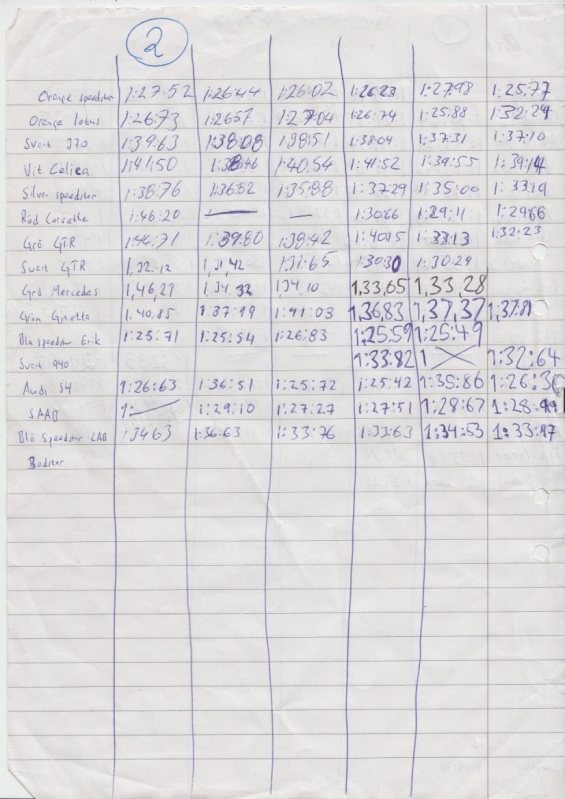 2
Orange speedster 1:27:52 1:26:44 1:26:02 1:26:23 1:27:98 1:25:77
Orange lotus 1:26:73 1:26:57 1:27:04 1:26:74 1:25:88 1:32:24
Svart 370 1:39:63 1:38:08 1:38:51 1:38:04 1:37:31 1:37:10
Vit Celica 1:41:50 1:40:54 1:41:52 1:39:55 1:39:14
Silver speedster 1:38:76 1:36:82 1:35:88 1:37:29 1:35:00 1:33:19
Röd Corvette 1:46:20 — — 1:30:66 1:29:11 1:29:66
Grå GTR 1:44:71 1:39:80 1:39:42 1:40:15 1:33:13 1:32:23
Svart GTR 1,32.12 1,31,42 1:31:65 1:30:30 1:30:29
Grå Mercedes 1,46,29 1,34 32 1,34,10 1,33,65 1,33,28
Grön Ginetta 1,40.85 1:37:19 1:41:03 1,36,83 1,37,37 1,37,81
Blå speedster Erik 1:25:71 1:25:54 1:26:83 1:25:59 1:25:49
Svart 940 1:33:82 1 1:32:64
Audi S4 1:26:63 1:36:51 1:25:72 1:25:42 1:35:86 1:26:36
SAAB 1: 1:29:10 1:27:27 1:27:51 1:28:67 1:28:99
Blå Speedster LAB 1:34:63 1:36:63 1:33:76 1:33:63 1:34:53 1:33:97